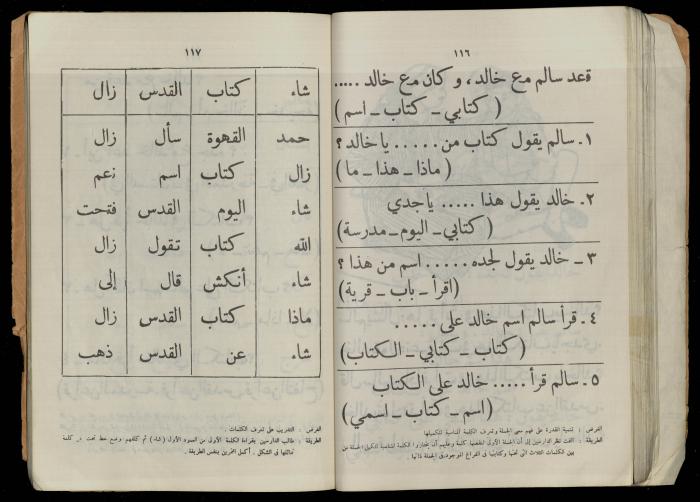 ١١٦
قعد سالم مع خالد ، و كان مع خالد .....
( كتابي ـ كتاب ـ اسم )
١. سالم يقول كتاب من ..... يا خالد ؟
( ماذا ـ هذا ـ ما )
٢. خالد يقول هذا ..... ياجدي
( كتابي ـ اليوم ـ مدرسة )
٣ ـ خالد يقول لجده ..... اسم من هذا ؟
( اقرأ ـ باب ـ قرية )
٤. قرأ سالم اسم خالد على .....
( كتاب ـ كتابي ـ الكتاب )
٥. سالم قرأ ..... خالد على الكتاب
( اسم ـ كتاب ـ اسمي )
الغرض : تنمية القدرة على فهم معنى الجملة وتعرف الكلمة المناسبة لتكملتها
الطريقة : الفت نظر الدارسين إلى أن الجملة الأولى تنقصها كلمة وعليهم أن يختاروا الكلمة المناسبة لتكميل الجملة من
بين الكلمات الثلاث التى تحتها وكتابتها فى الفراغ الموجود فى الجملة ذاتها .
١١٧
شاء كتاب القدس زال
حمد القهوة سأل زال
زال كتاب اسم زعم
شاء اليوم القدس فتحت
الله كتاب تقول زال
شاء أنكش قال إلى
ماذا كتاب القدس زال
شاء عن القدس ذهب
الغرض : التدريب على تعرف الكلمات .
الطريقة : طالب الدارسين بقراءة الكلمة الأولى من العمود الأول (شاء) ثم كلفهم وضع خط تحت كل كلمة
تماثلها فى الشكل . أكمل التمرين بنفس الطريقة .